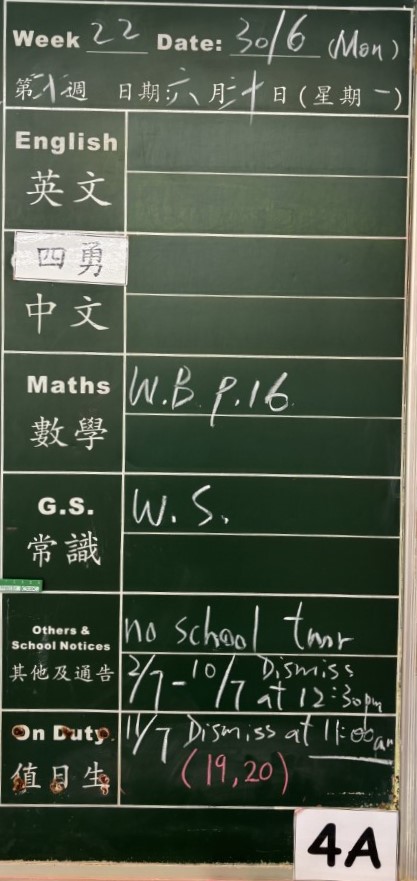 Week 22 Date: 30/6 (Mon)
第 週 日期:六月三十日(星期一)
English
英文
四勇
中文
Maths
W.B. p.16.
數學
G.S.
W.S.
常識
Others &
School Notices
no school tmr
其他及通告
2/7-10/7 Dismiss
at 12:30pm
On Duty
11/7 Dismiss at 11:00am
值日生
(19,20)
4A